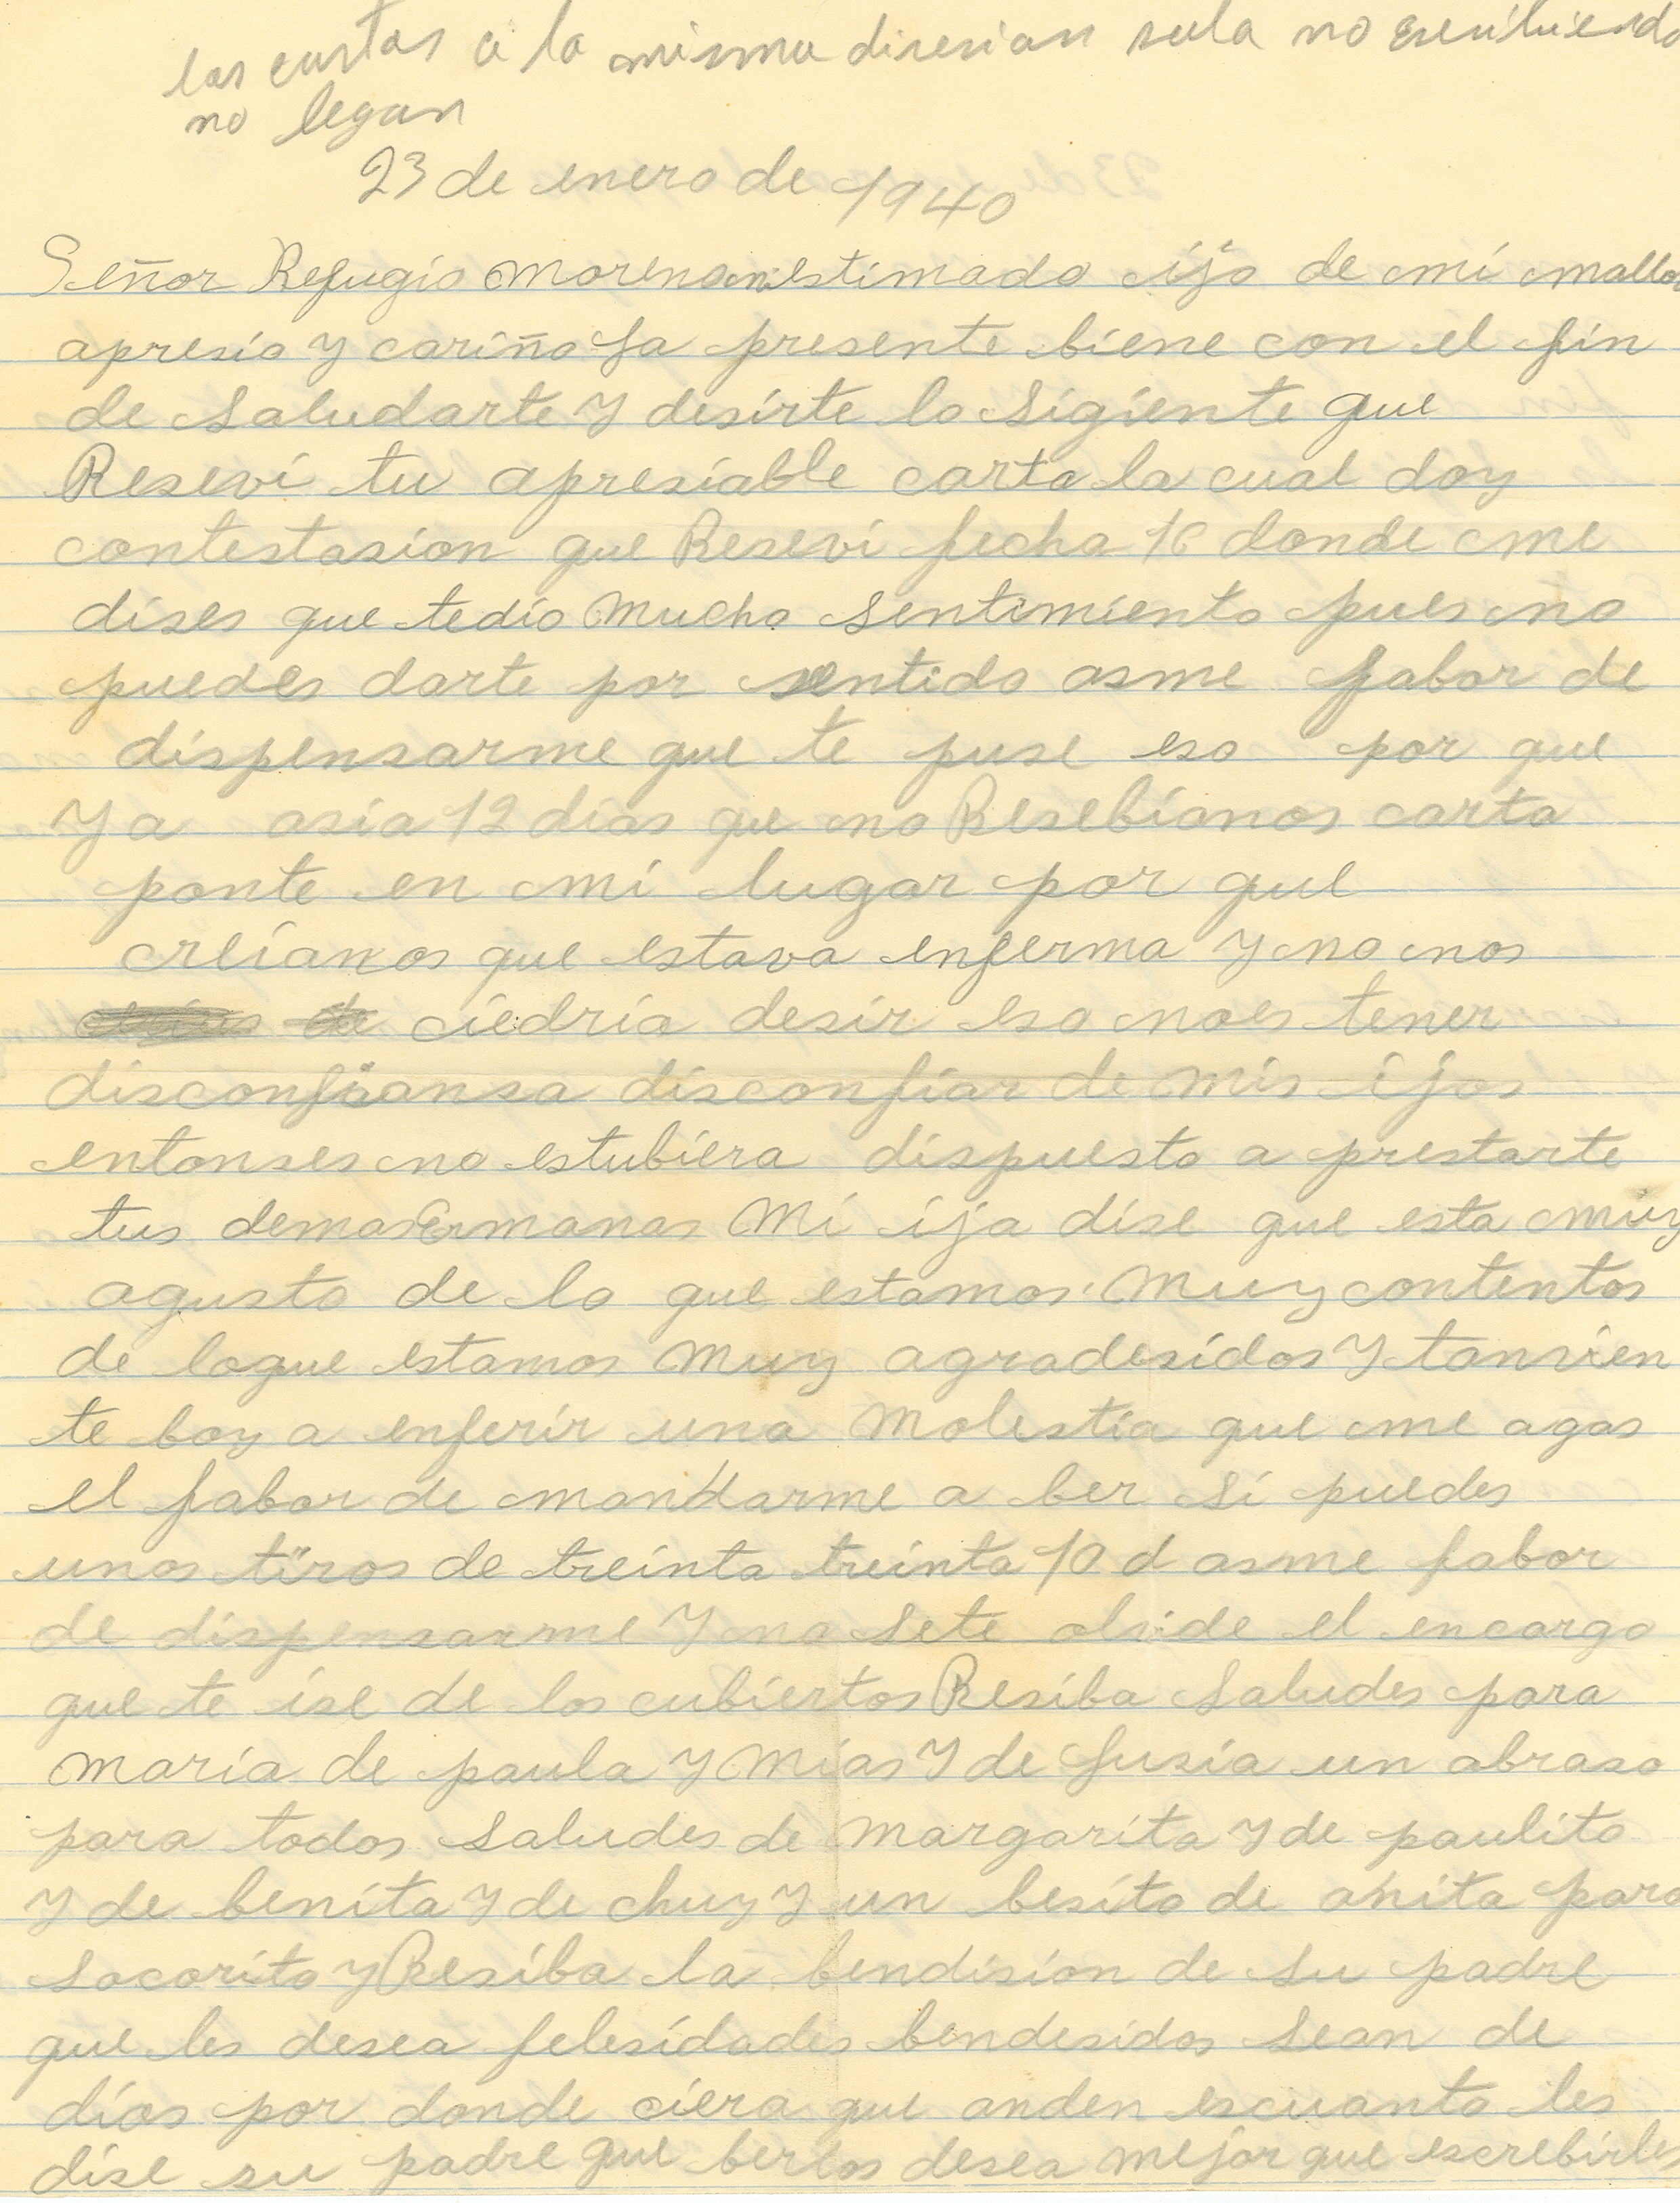 las cartas a la misma diresion sula no escribiendo
no legan
23 de enero de 1940
Señor Refugio Moreno mi estimado ijo de mi mallor
apresio y cariño La presente biene con el fin
de saludarte y desirte lo sigiente que
Reseví tu apresiable carta la cual doy
contestasion que Reseví fecha 16 donde me
dises que tedio mucho sentimiento pues no
puedes darte por sentido asme fabor de
dispensarme que te puse eso por que
ya asia 12 dias que no Resebianos carta
ponte en mi lugar por que
creianos que estava enferma y no nos
ciedria desir eso noes tener
disconfiansa disconfiar de mis ijos
entonses no estubiera dispuesto a prestarte
tus demas Ermanas Mi ija dise que esta muy
agusto de lo que estamos Muy contentos
de loque estamos Muy agradesidos y tanvien
te boy a enferir una Molestia que me agas
el fabor de mandarme a ber si puedes
unos tiros de treinta treinta 10 d asme fabor
de dispensarme y no sete olvide el encargo
que te ise de los cubiertos Resiba saludes para
maria de paula y Mias y de Lusia un abraso
para todos saludes de Margarita y de paulito
y de benita y de chuy y un besito de anita para
socorito y Resiba la bendision de su padre
que les desea felesidades bendesidos sean de
dios por donde ciera que anden escuanto les
dise su padre que berlos desea mejor que escrebirles